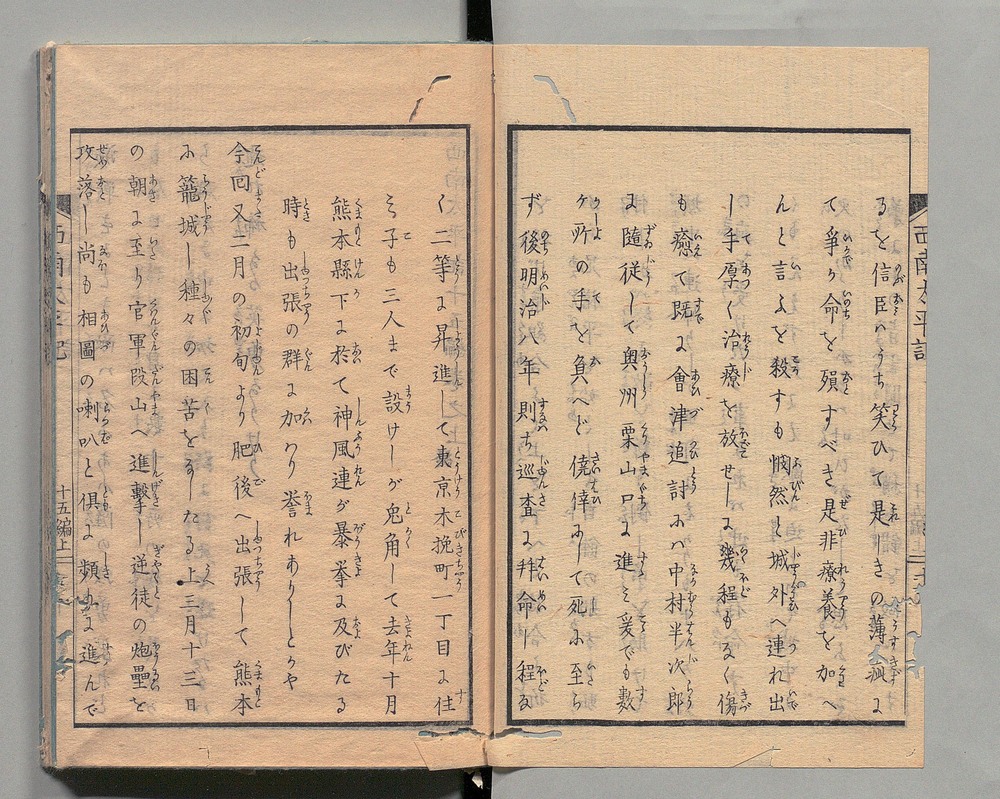 るを信臣ハうち笑ひて是しきの薄
て爭か命を殞すべき是非療養を加へ
んと言ふを殺すも憫然と城外へ連れ出
し手厚く治療を放せしに幾程もなく傷
も癒て既に會津追討にハ中村半次郎
に隨従して奥州栗山口に進ミ爰でも數
ケ所の手を負へど僥倖にて死に至ら
ず後明治八年則ち巡査に拜命し程な
く二等に昇進して東京木挽町一丁目に住
ミ子も三人まで設けしが兎角して去年十月
熊本縣下に於て神風連が暴挙に及びたる
時も出張の群に加ハり誉れありしとかや
今回又二月の初旬より肥後へ出張して熊本
に籠城し種々の困苦をなしたる上三月十三日
の朝に至り官軍段山へ進撃し逆徒の炮壘を
攻落し尚も相圖の喇叭と倶に頻りに進んで
西南太平記
十五編上